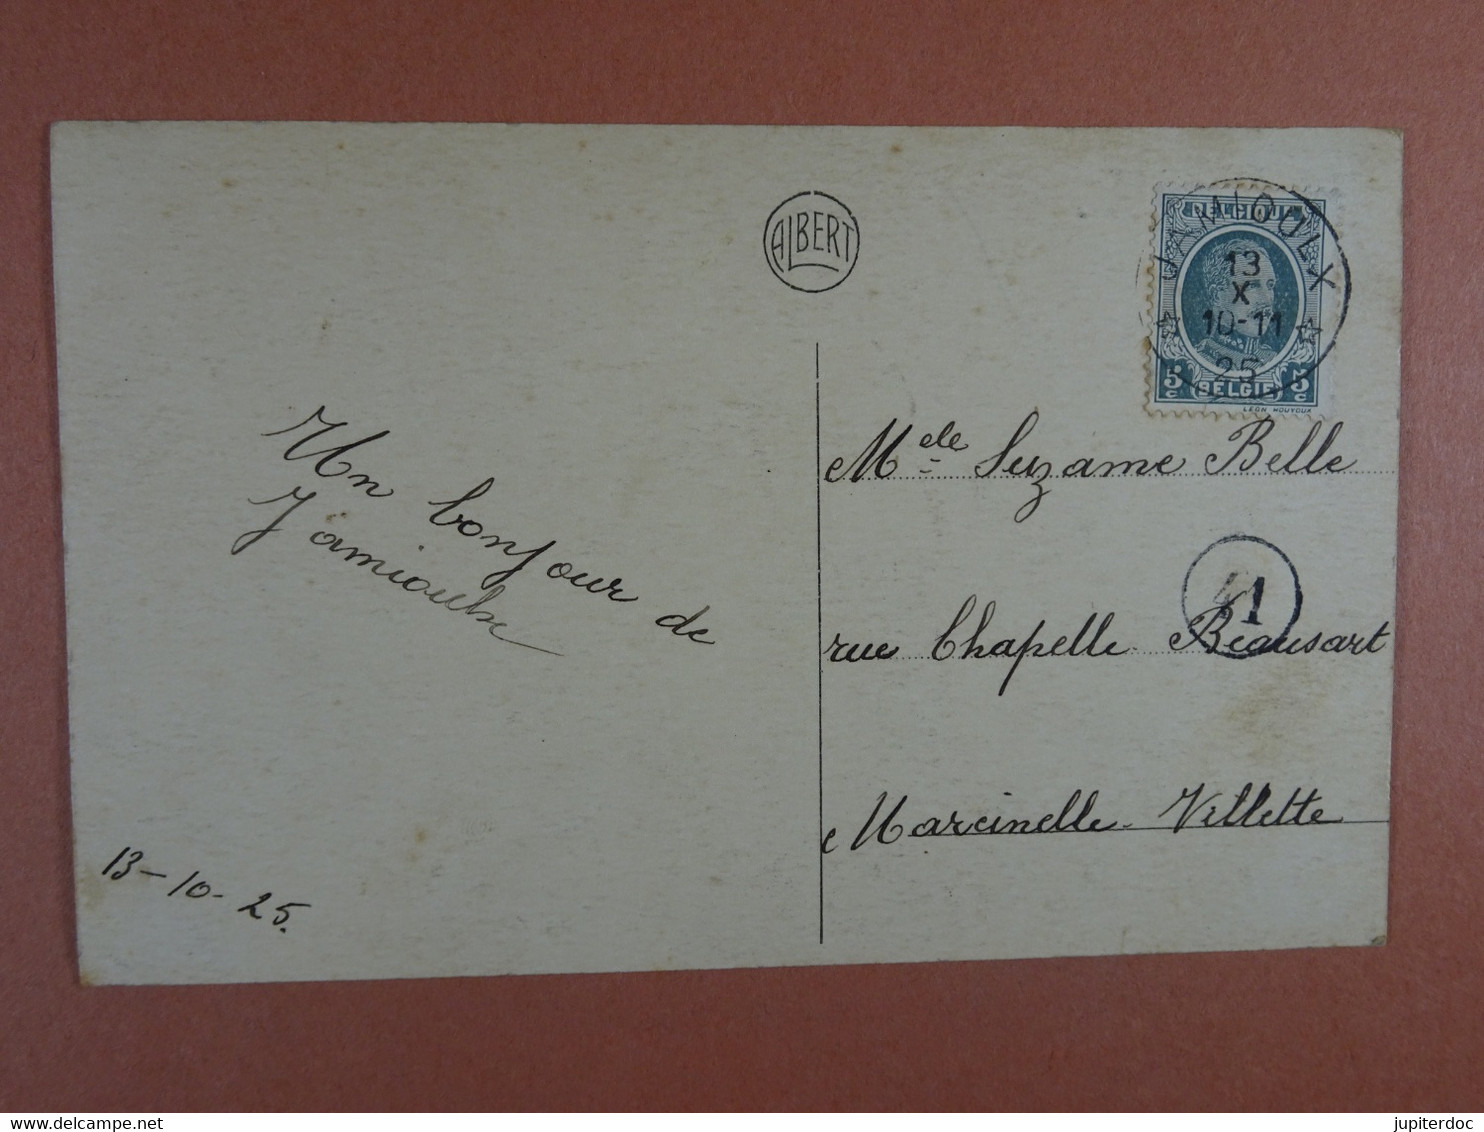 ALBERT
JAMIOULX
13
X
10-11
25
BELGIQUE
5 c BELGIË 5 c
LEON HOUYOUX
Un bonjour de
Jamioulx
13-10-25.
Melle Suzanne Belle
41
rue Chapelle Beausart
Marcinelle-Villette
delcampe.net
jupiterdoc